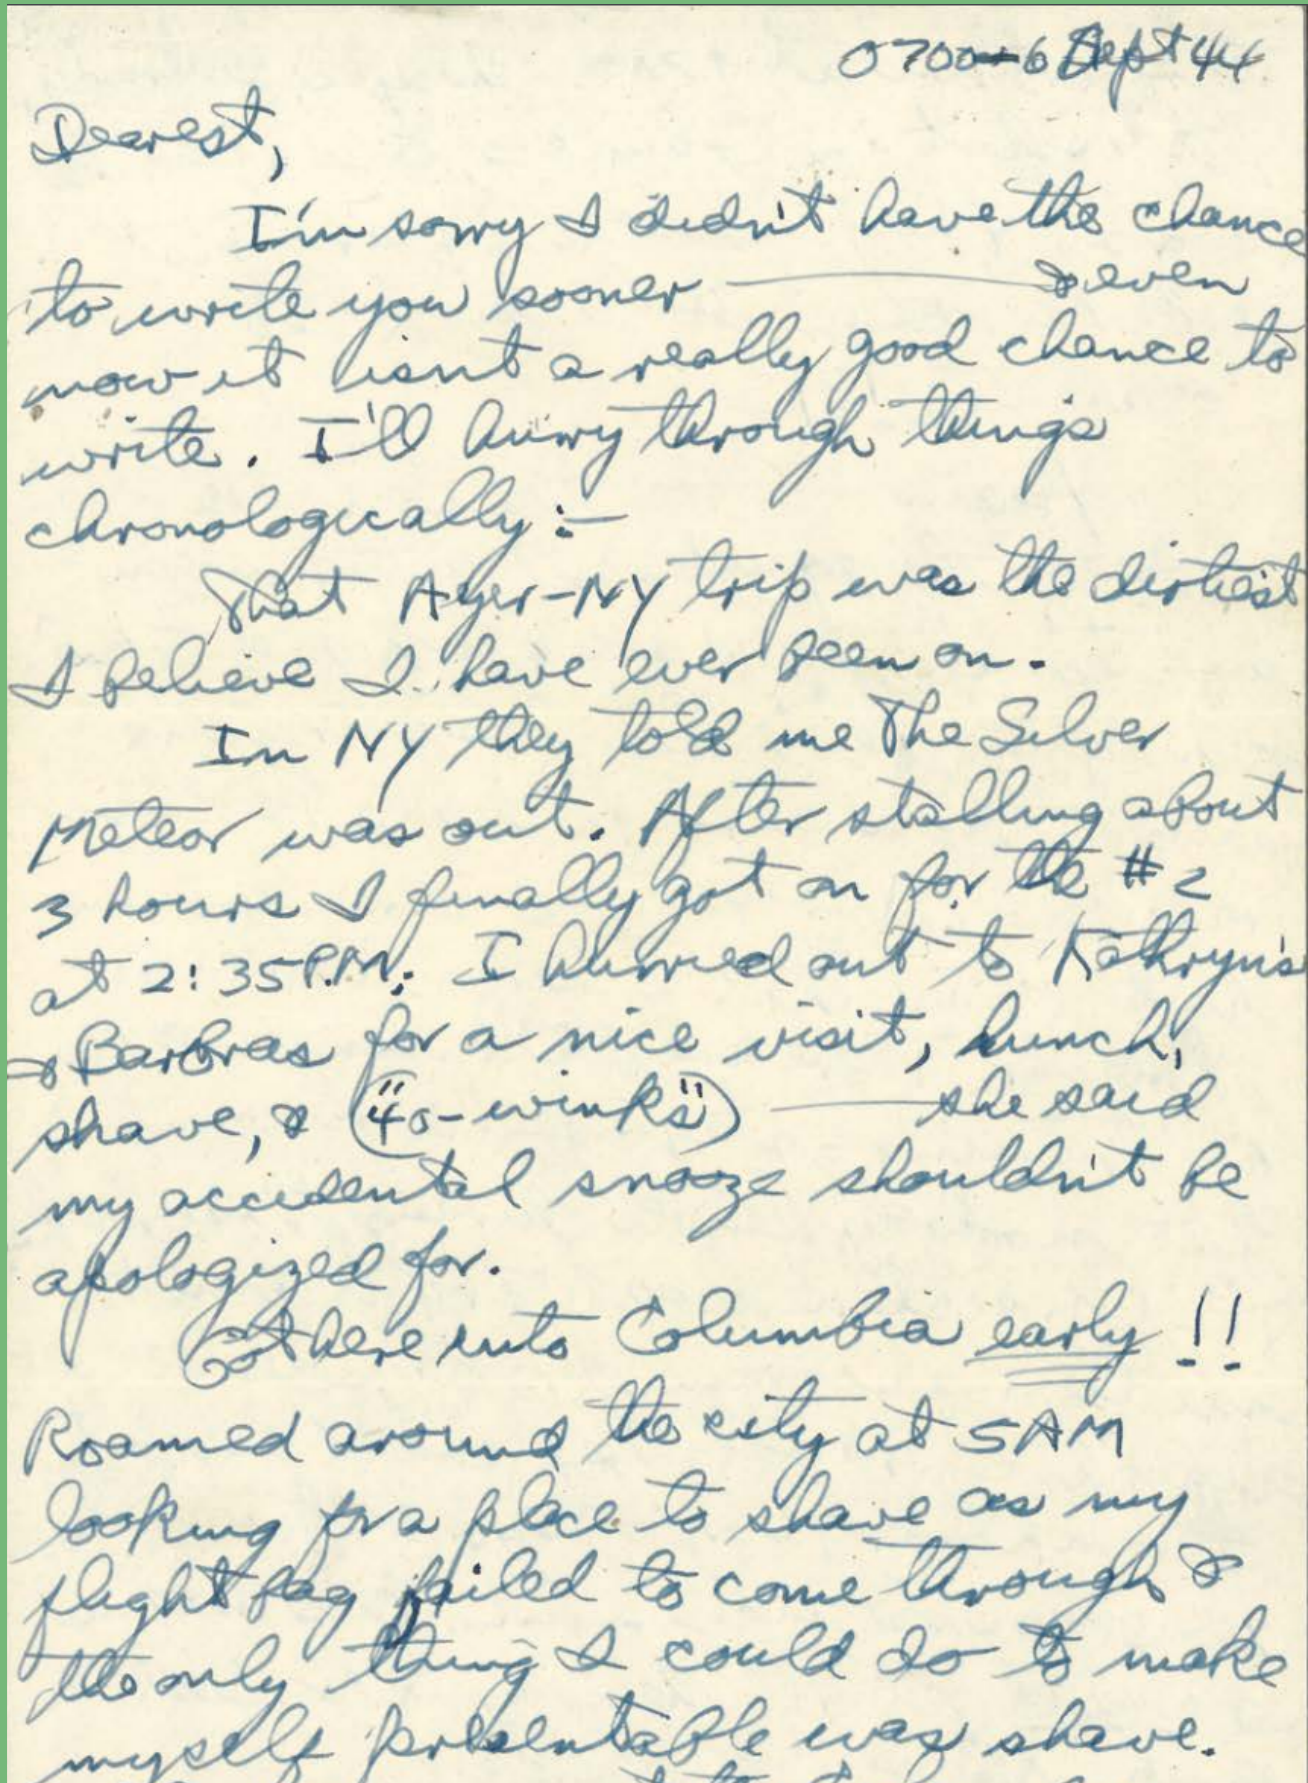 0700-6 Sept 44
Dearest,
I'm sorry I didn't have the chance
to write you sooner — & even
now it isn't a really good chance to
write. I'll hurry through things
chronologically:-
That Ayer-NY trip was the dirtiest
I believe I have ever been on.
In NY they told me The Silver
Meteor was out. After stalling about
3 hours I finally got on for the #2
at 2:35P.M. I hurried out to Kathryn's
& Barbras for a nice visit, lunch,
shave, & ("40-winks") — she said
my accidental snooze shouldn't be
apologized for.
Got here into Columbia early !!
Roamed around the city at 5AM
looking for a place to shave as my
flight bag failed to come through &
the only thing I could do to make
myself presentable was shave.